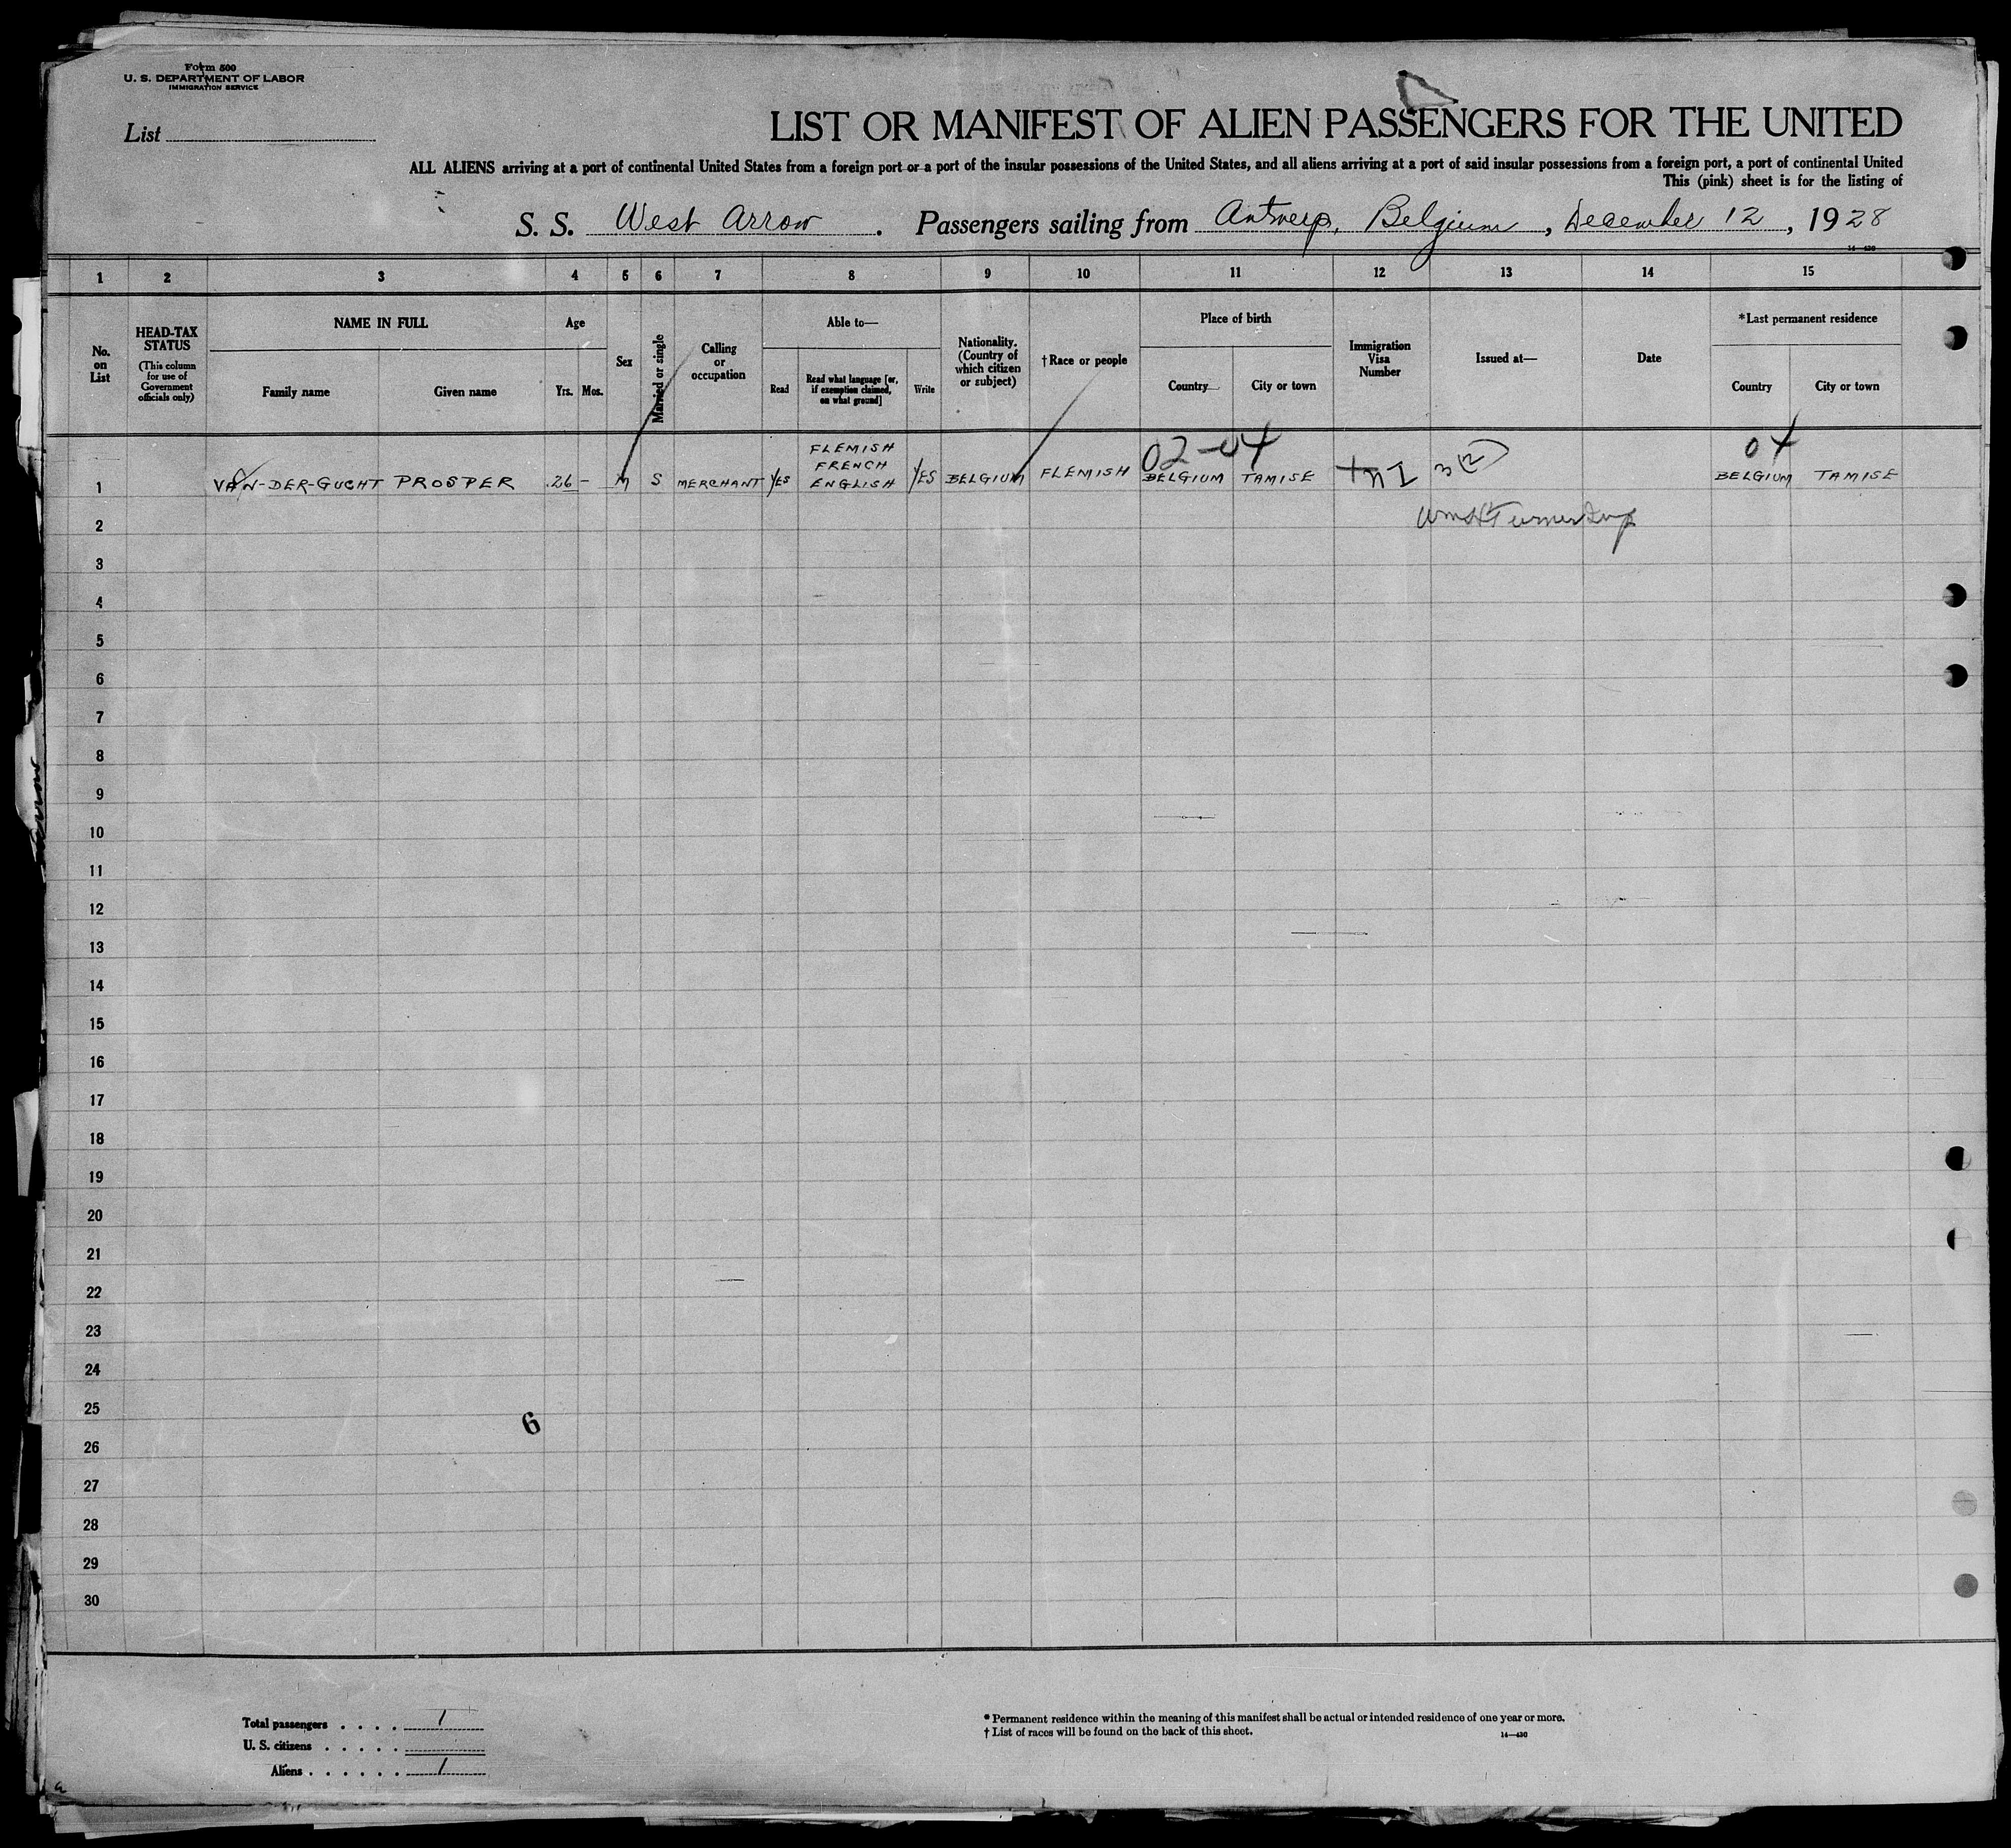 Form 500
U. S. DEPARTMENT OF LABOR
IMMIGRATION SERVICE
List
LIST OR MANIFEST OF ALIEN PASSENGERS FOR THE UNITED
ALL ALIENS arriving at a port of continental United States from a foreign port or a port of the insular possessions of the United States, and all aliens arriving at a port of said insular possessions from a foreign port, a port of continental United
This (pink) sheet is for the listing of
S. S. West Arrow. Passengers sailing from Antwerp, Belgium, December 12, 1928
14—430
1 2 3 4 5 6 7 8 9 10 11 12 13 14 15
No. on List
HEAD-TAX STATUS
(This column for use of Government officials only)
NAME IN FULL
Family name Given name
Age
Yrs. Mos.
Sex
Married or single
Calling or occupation
Able to—
Read
Read what language [or, if exemption claimed, on what ground]
Write
Nationality. (Country of which citizen or subject)
†Race or people
Place of birth
Country City or town
Immigration Visa Number
Issued at—
Date
*Last permanent residence
Country City or town
02-04 04
1 VAN-DER-GUCHT PROSPER 26 - M S MERCHANT YES FLEMISH FRENCH ENGLISH YES BELGIUM FLEMISH BELGIUM TAMISE 3(2) BELGIUM TAMISE
2 Wm H Turner Insp
3
4
5
6
7
8
9
10
11
12
13
14
15
16
17
18
19
20
21
22
23
24
25
6
26
27
28
29
30
Total passengers . . . . 1
U. S. citizens . . . . .
Aliens . . . . . . 1
* Permanent residence within the meaning of this manifest shall be actual or intended residence of one year or more.
† List of races will be found on the back of this sheet.
14—430